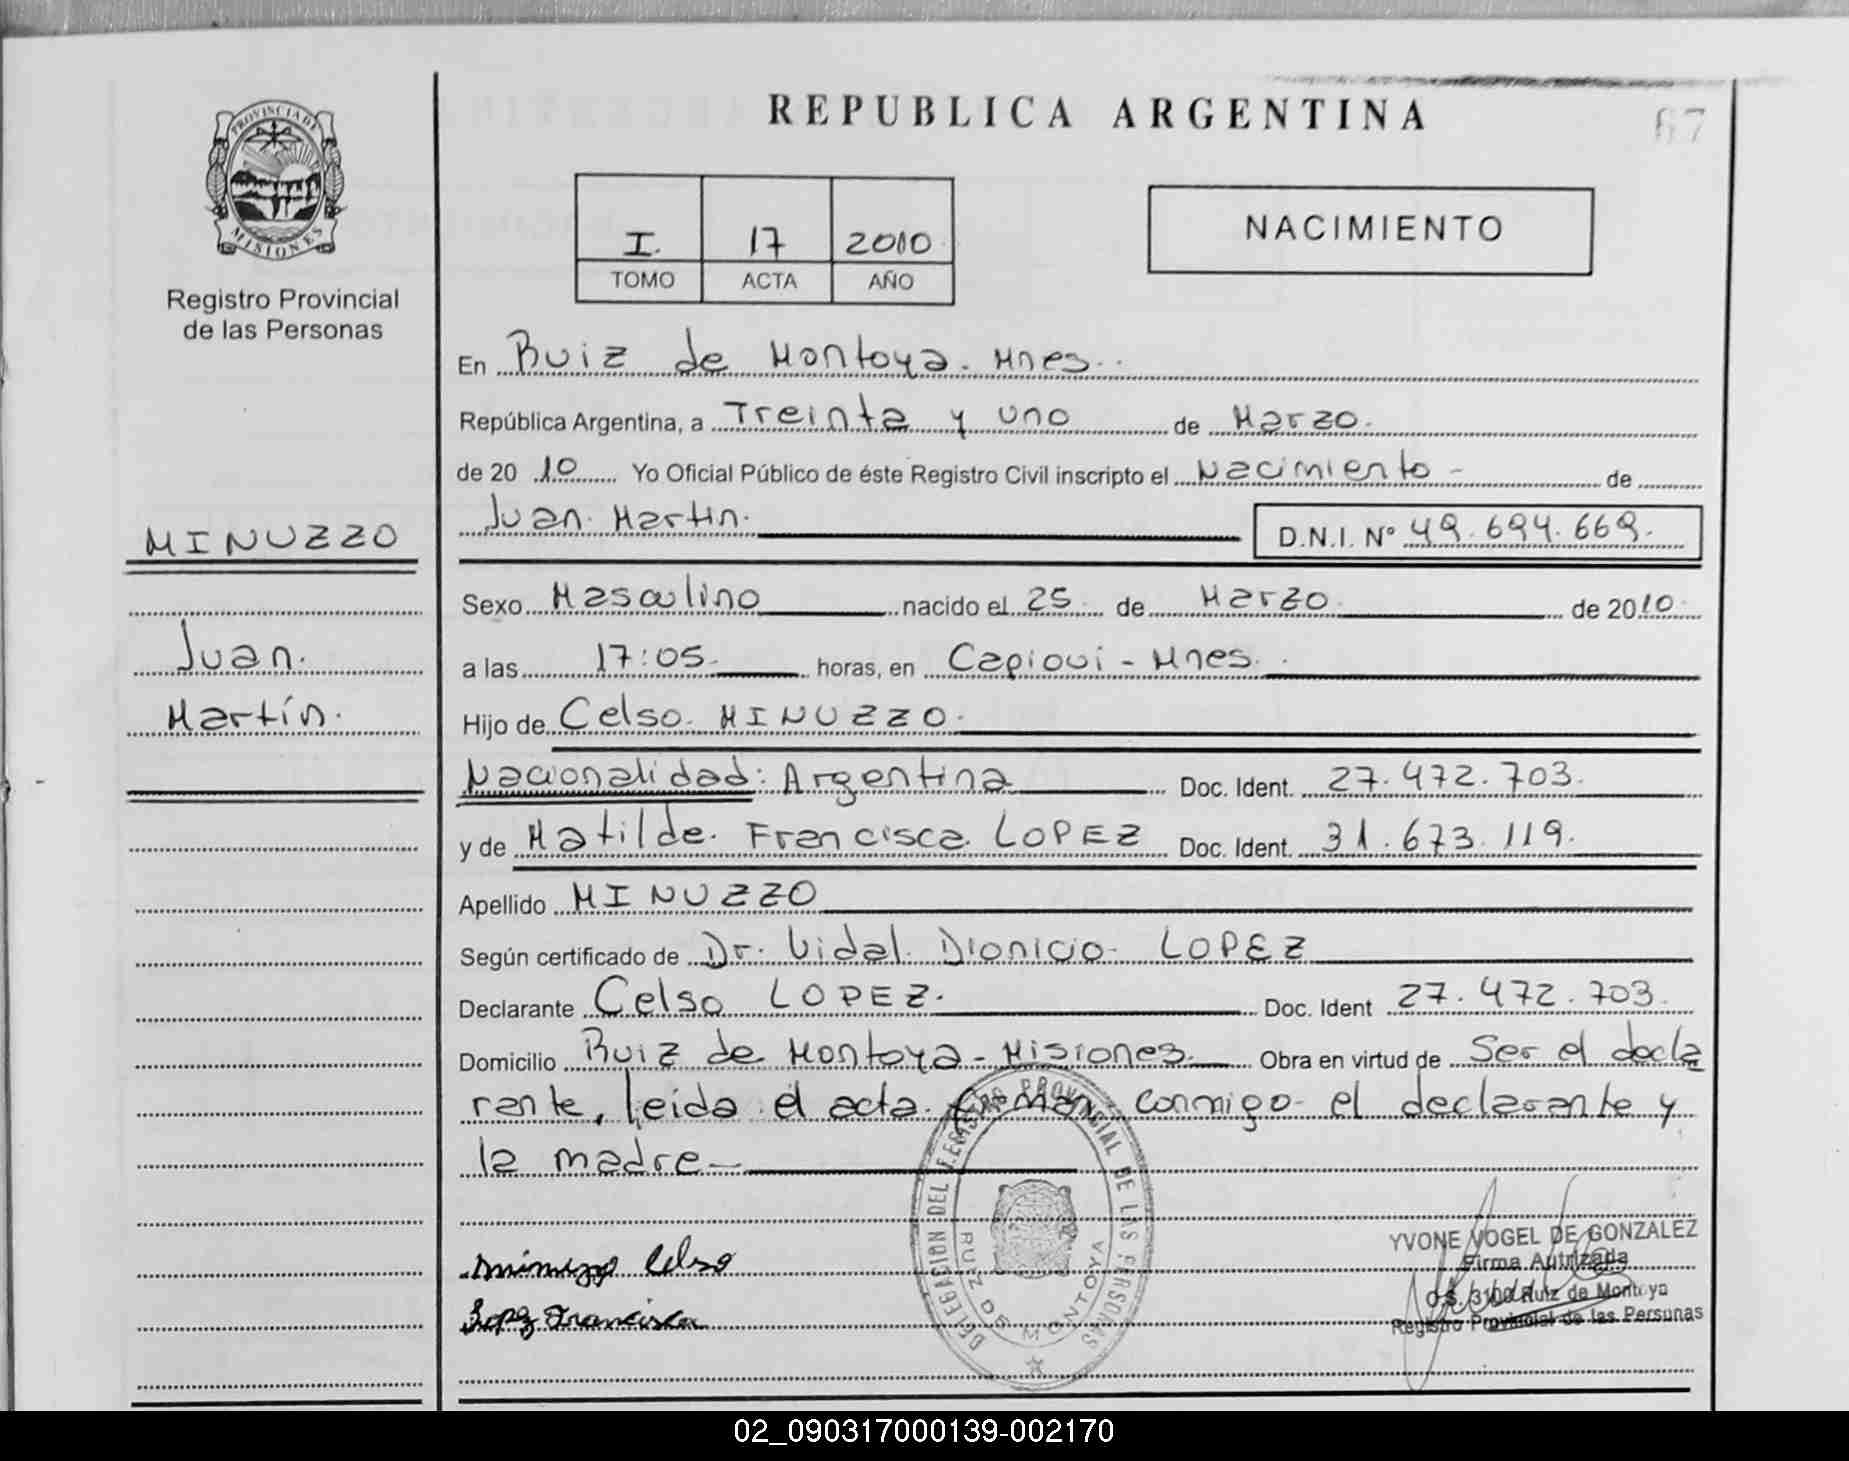 REPUBLICA ARGENTINA
67
PROVINCIA DE
MISIONES
Registro Provincial
de las Personas
I. 17 2010
TOMO ACTA AÑO
NACIMIENTO
En Ruiz de Montoya. Mnes..
República Argentina, a Treinta y uno de Marzo.
de 20 10 Yo Oficial Público de éste Registro Civil inscripto el Nacimiento - de
Juan Martin.
D.N.I. Nº 49.694.669.
MINUZZO
Juan.
Martín.
Sexo Masculino nacido el 25 de Marzo de 2010
a las 17:05 horas, en Capiovi - Mnes.
Hijo de Celso. MINUZZO.
Nacionalidad: Argentina Doc. Ident. 27.472.703.
y de Matilde. Francisca LOPEZ Doc. Ident. 31.673.119.
Apellido MINUZZO
Según certificado de Dr. Vidal Dionicio LOPEZ
Declarante Celso LOPEZ. Doc. Ident 27.472.703.
Domicilio Ruiz de Montoya - Misiones. Obra en virtud de Ser el decla
rante, leida el acta firman conmigo el declarante y
la madre —
Minuzzo Celso
Lopez Francisca
DELEGACION DEL REGISTRO PROVINCIAL DE LAS PERSONAS
RUIZ DE MONTOYA
YVONE VOGEL DE GONZALEZ
Firma Autrizada
O.S. 3100 Ruiz de Montoya
Registro Provincial de las Personas
02_090317000139-002170